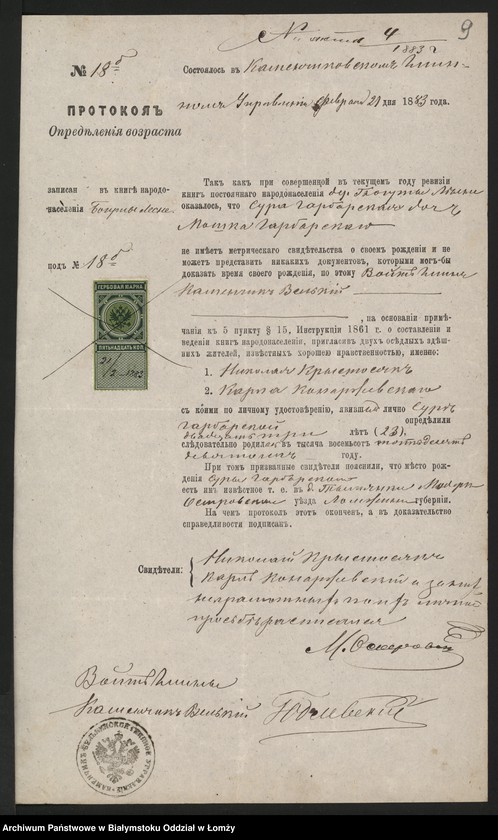 4
1883 г
9
№ 18 б
Состоялось въ Каменчиковскомъ Гмин-
номъ Управленіи Февраля 21 дня 1883 года.
ПРОТОКОЛЪ
Опредѣленія возраста
записан въ книгѣ народо-
населенія
подъ № 18 б
Такъ какъ при совершенной въ текущемъ году ревизіи
книгъ постояннаго народонаселенія
оказалось, что Сура Гарбарская дочь
Мошка Гарбарскаго
не имѣетъ метрическаго свидѣтельства о своемъ рожденіи и не
можетъ представить никакихъ документовъ, которыми могъ-бы
доказать время своего рожденія, по этому Войтъ Гмины
Каменчикъ Велькій
, на основаніи примѣ-
чанія къ 5 пункту § 15, Инструкціи 1861 г. о составленіи и
веденіи книгъ народонаселенія, пригласилъ двухъ осѣдлыхъ здѣш-
нихъ жителей, извѣстныхъ хорошею нравственностью, именно:
1. Николая
2. Карла Конаржевскаго
съ коими по личному удостовѣренію, явившей лично Суръ
Гарбарской опредѣлили
двадцать три лѣтъ (23),
слѣдовательно родилась въ тысяча восемьсотъ пятьдесятъ
девятомъ году.
При томъ призванные свидѣтели пояснили, что мѣсто рож-
денія Суры Гарбарской
есть имъ извѣстное т. е. въ д.
Островскаго уѣзда Ломжинской губерніи.
На чемъ протоколъ этотъ оконченъ, а въ доказательство
справедливости подписанъ.
ГЕРБОВАЯ МАРКА
ПЯТНАДЦАТЬ КОП.
21/2 1883
Свидѣтели:
Николай
Карлъ Конаржевскій а за нихъ
неграмотныхъ по ихъ личной
просьбѣ расписался
М.
Войтъ Гмины
Каменчикъ Велькій
Archiwum Państwowe w Białymstoku Oddział w Łomży